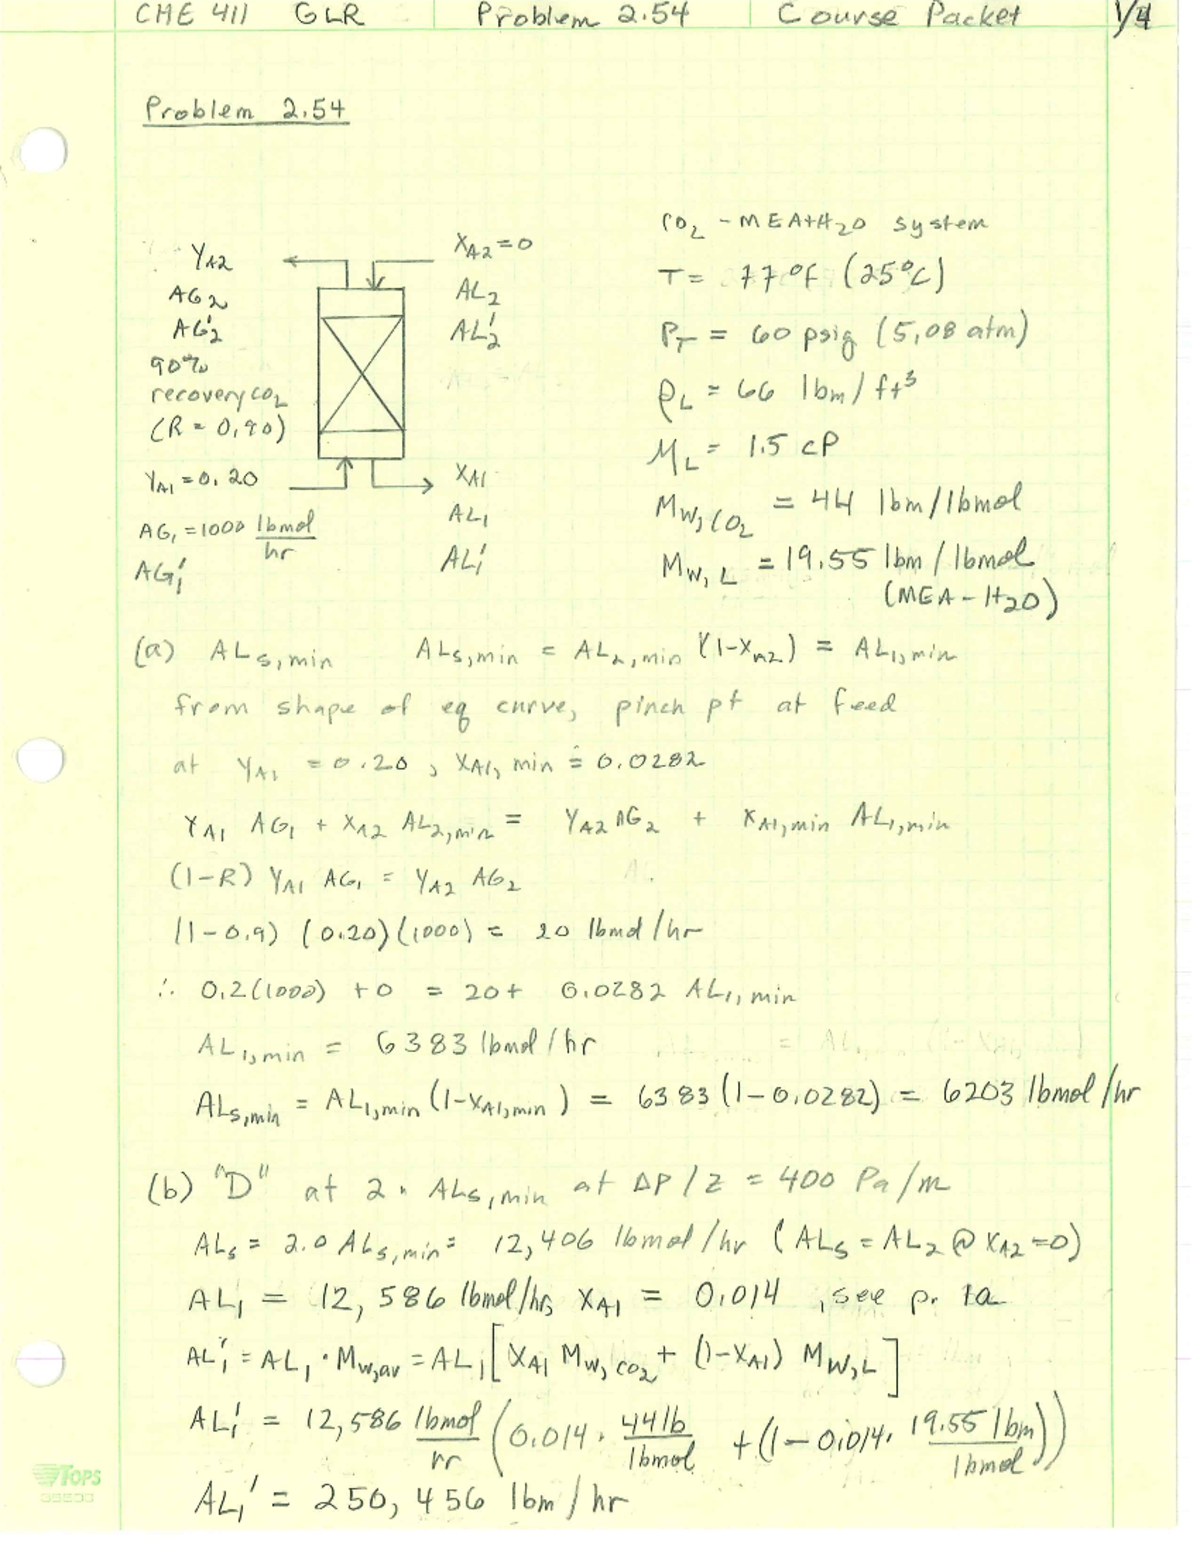 CHE 411 GLR Problem 2.54 Course Packet 1/4
Problem 2.54
YA2
AG2
AG2'
90%
recovery CO2
(R = 0.90)
YA1 = 0.20
AG1 = 1000 lbmol/hr
AG1'
XA2 = 0
AL2
AL2'
XA1
AL1
AL1'
CO2 - MEA+H2O system
T = 77°F (25°C)
PT = 60 psig (5.08 atm)
ρL = 66 lbm/ft³
μL = 1.5 cP
MW,CO2 = 44 lbm/lbmol
MW,L = 19.55 lbm/lbmol
(MEA-H2O)
(a) ALs,min ALs,min = AL2,min (1-XA2) = AL1,min
from shape of eq curve, pinch pt at feed
at YA1 = 0.20, XA1,min = 0.0282
YA1 AG1 + XA2 AL2,min = YA2 AG2 + XA1,min AL1,min
(1-R) YA1 AG1 = YA2 AG2
(1-0.9) (0.20)(1000) = 20 lbmol/hr
∴ 0.2(1000) + 0 = 20 + 0.0282 AL1,min
AL1,min = 6383 lbmol/hr
ALs,min = AL1,min (1-XA1,min) = 6383 (1-0.0282) = 6203 lbmol/hr
(b) "D" at 2 · ALs,min at ΔP/Z = 400 Pa/m
ALs = 2.0 ALs,min = 12,406 lbmol/hr (ALs = AL2 @ XA2=0)
AL1 = 12,586 lbmol/hr, XA1 = 0.014, see p. 1a
AL1' = AL1 · MW,av = AL1 [XA1 MW,CO2 + (1-XA1) MW,L]
AL1' = 12,586 lbmol/hr (0.014 · 44 lb/lbmol + (1-0.014 · 19.55 lbm/lbmol))
AL1' = 250,456 lbm/hr
TOPS